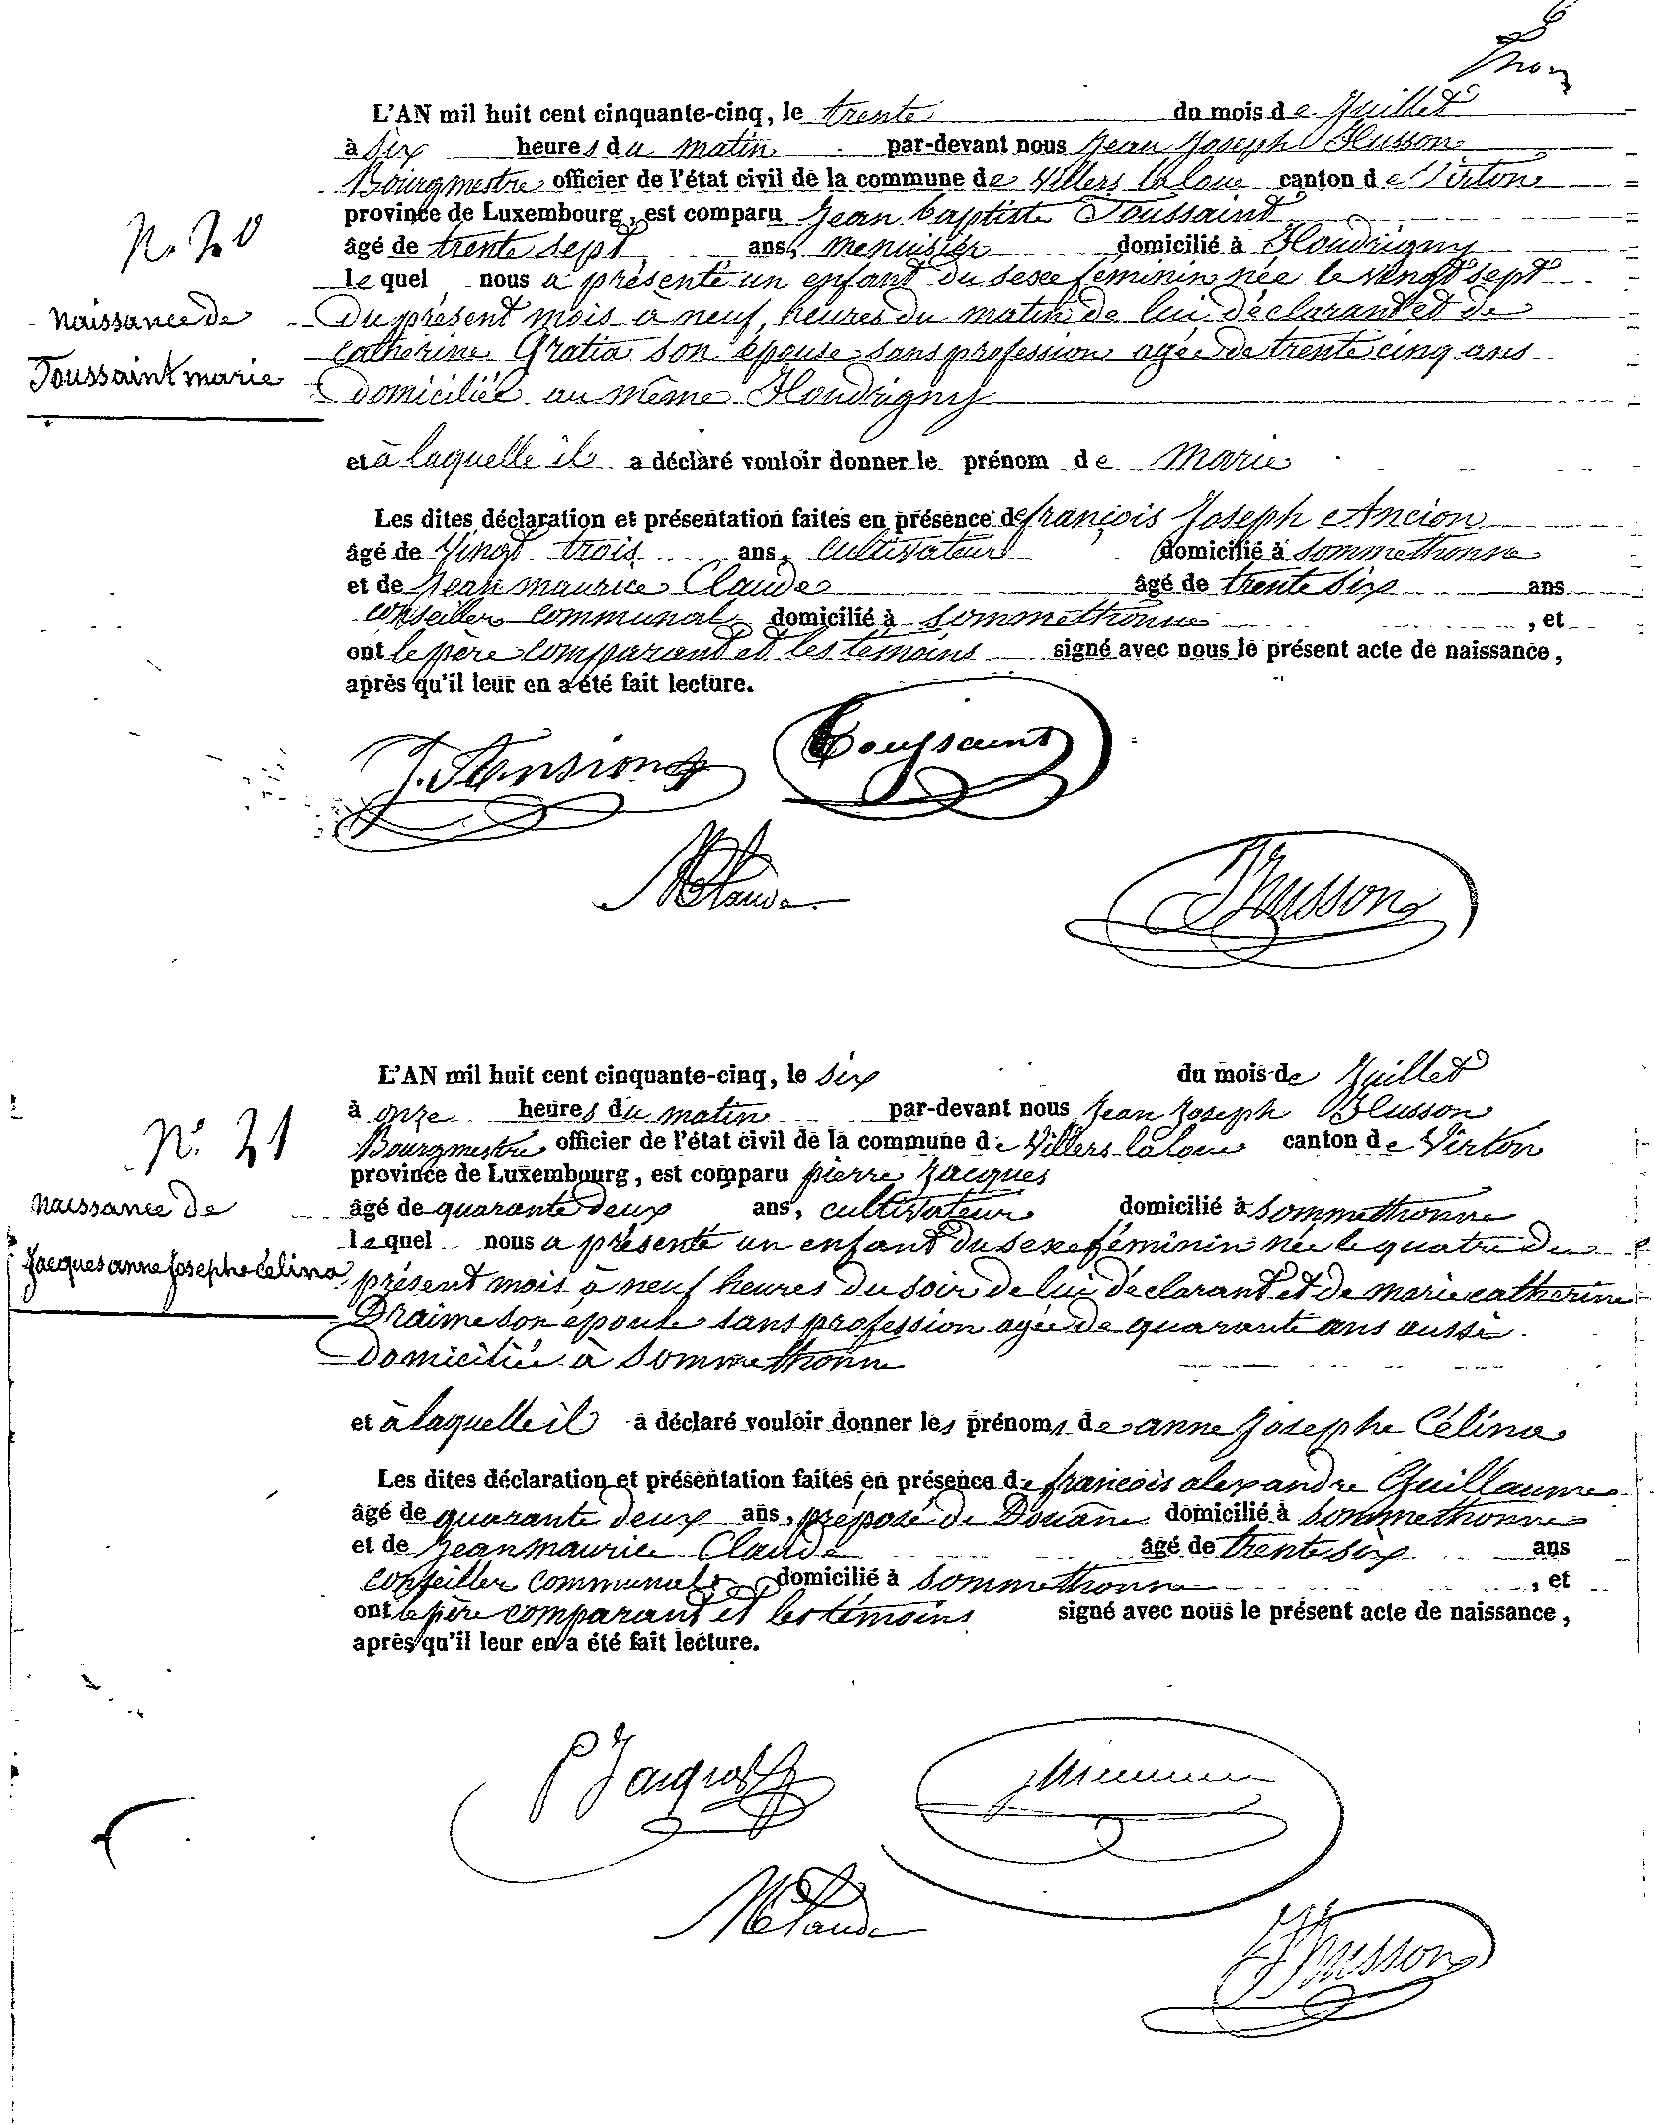 L'AN mil huit cent cinquante-cinq, le trente du mois de Juillet
à six heures du matin par-devant nous Jean Joseph Husson
Bourgmestre officier de l'état civil de la commune de Villers la loue canton de Virton
province de Luxembourg, est comparu Jean baptiste Toussaint
N. 20
âgé de trente sept ans, menuisier domicilié à Houdrigny
lequel nous a présenté un enfant du sexe féminin née le vingt sept
naissance de
du présent mois à neuf heures du matin de lui déclarant et de
catherine Gratia son épouse sans profession agée de trente cinq ans
Toussaint marie
domiciliée au même Houdrigny
et à laquelle il a déclaré vouloir donner le prénom de marie
Les dites déclaration et présentation faites en présence de françois Joseph Ancion
âgé de vingt trois ans, cultivateur domicilié à sommethonne
et de Jean maurice Claude âgé de trente six ans
conseiller communal domicilié à sommethonne , et
ont le père comparant et les témoins signé avec nous le présent acte de naissance,
après qu'il leur en a été fait lecture.
J. Ansion Toussaint
MClaude
JHusson
L'AN mil huit cent cinquante-cinq, le six du mois de Juillet
à onze heures du matin par-devant nous Jean Joseph Husson
N° 21
Bourgmestre officier de l'état civil de la commune de Villers la loue canton de Virton
province de Luxembourg, est comparu pierre Jacques
naissance de
âgé de quarante deux ans, cultivateur domicilié à sommethonne
lequel nous a présenté un enfant du sexe féminin née le quatre du
Jacques anne Josephe Célina
présent mois à neuf heures du soir de lui déclarant et de marie catherine
Draime son épouse sans profession agée de quarante ans aussi
domiciliée à sommethonne
et à laquelle il a déclaré vouloir donner les prénoms de anne Josephe Célina
Les dites déclaration et présentation faites en présence de francois alexandre Guillaume
âgé de quarante deux ans, préposé de Douane domicilié à sommethonne
et de Jean maurice Claude âgé de trente six ans
conseiller communal domicilié à sommethonne , et
ont le père comparant et les témoins signé avec nous le présent acte de naissance,
après qu'il leur en a été fait lecture.
P Jacques
MClaude
JHusson